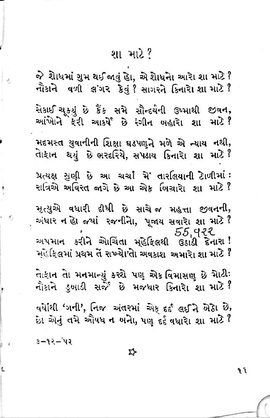 શા માટે?
જે શોધમાં ગુમ થઈ જાવું હો, એ શોધનો આરો શા માટે?
નૌકાને વળી લંગર કેવું? સાગરને કિનારો શા માટે?
સેકાઈ ચૂક્યું છે કૈંક સમે સૌન્દર્યની ઉષ્માથી જીવન,
આંખોને ફરી આકર્ષે છે રંગીન બહારો શા માટે?
મદમસ્ત યુવાનીની શિક્ષા ઘડપણને મળે એ ન્યાય નથી,
તોફાન થયું છે ભરદરિયે, સપડાય કિનારો શા માટે?
પ્રત્યક્ષ સુણી છે આ ચર્ચા મેં તારલિયાની ટોળીમાં:
રાત્રિએ અવિરત જાગે છે આ એક બિચારો શા માટે?
મૃત્યુએ વધારી દીધી છે સાચે જ મહત્તા જીવનની,
અંધાર ન હો જ્યાં રજનીનો, પૂજાય સવારો શા માટે?
55,922
અપમાન કરીને ઓચિંતા મહેફિલથી ઉઠાડી દેનારા!
મહેફિલમાં પ્રથમ તેં રાખ્યો'તો અવકાશ અમારો શા માટે?
તોફાન તો મનમાન્યું કરશે પણ એક વિમાસણ છે મોટી:
નૌકાને ડુબાડી સર્જે છે મજધાર કિનારો શા માટે?
વર્ષોથી 'ગની', નિજ અંતરમાં એક દર્દ લઈને બેઠો છે,
છો એનું તમે ઔષધ ન બનો, પણ દર્દ વધારો શા માટે?
૩-૧૨-૫૩
૧૧